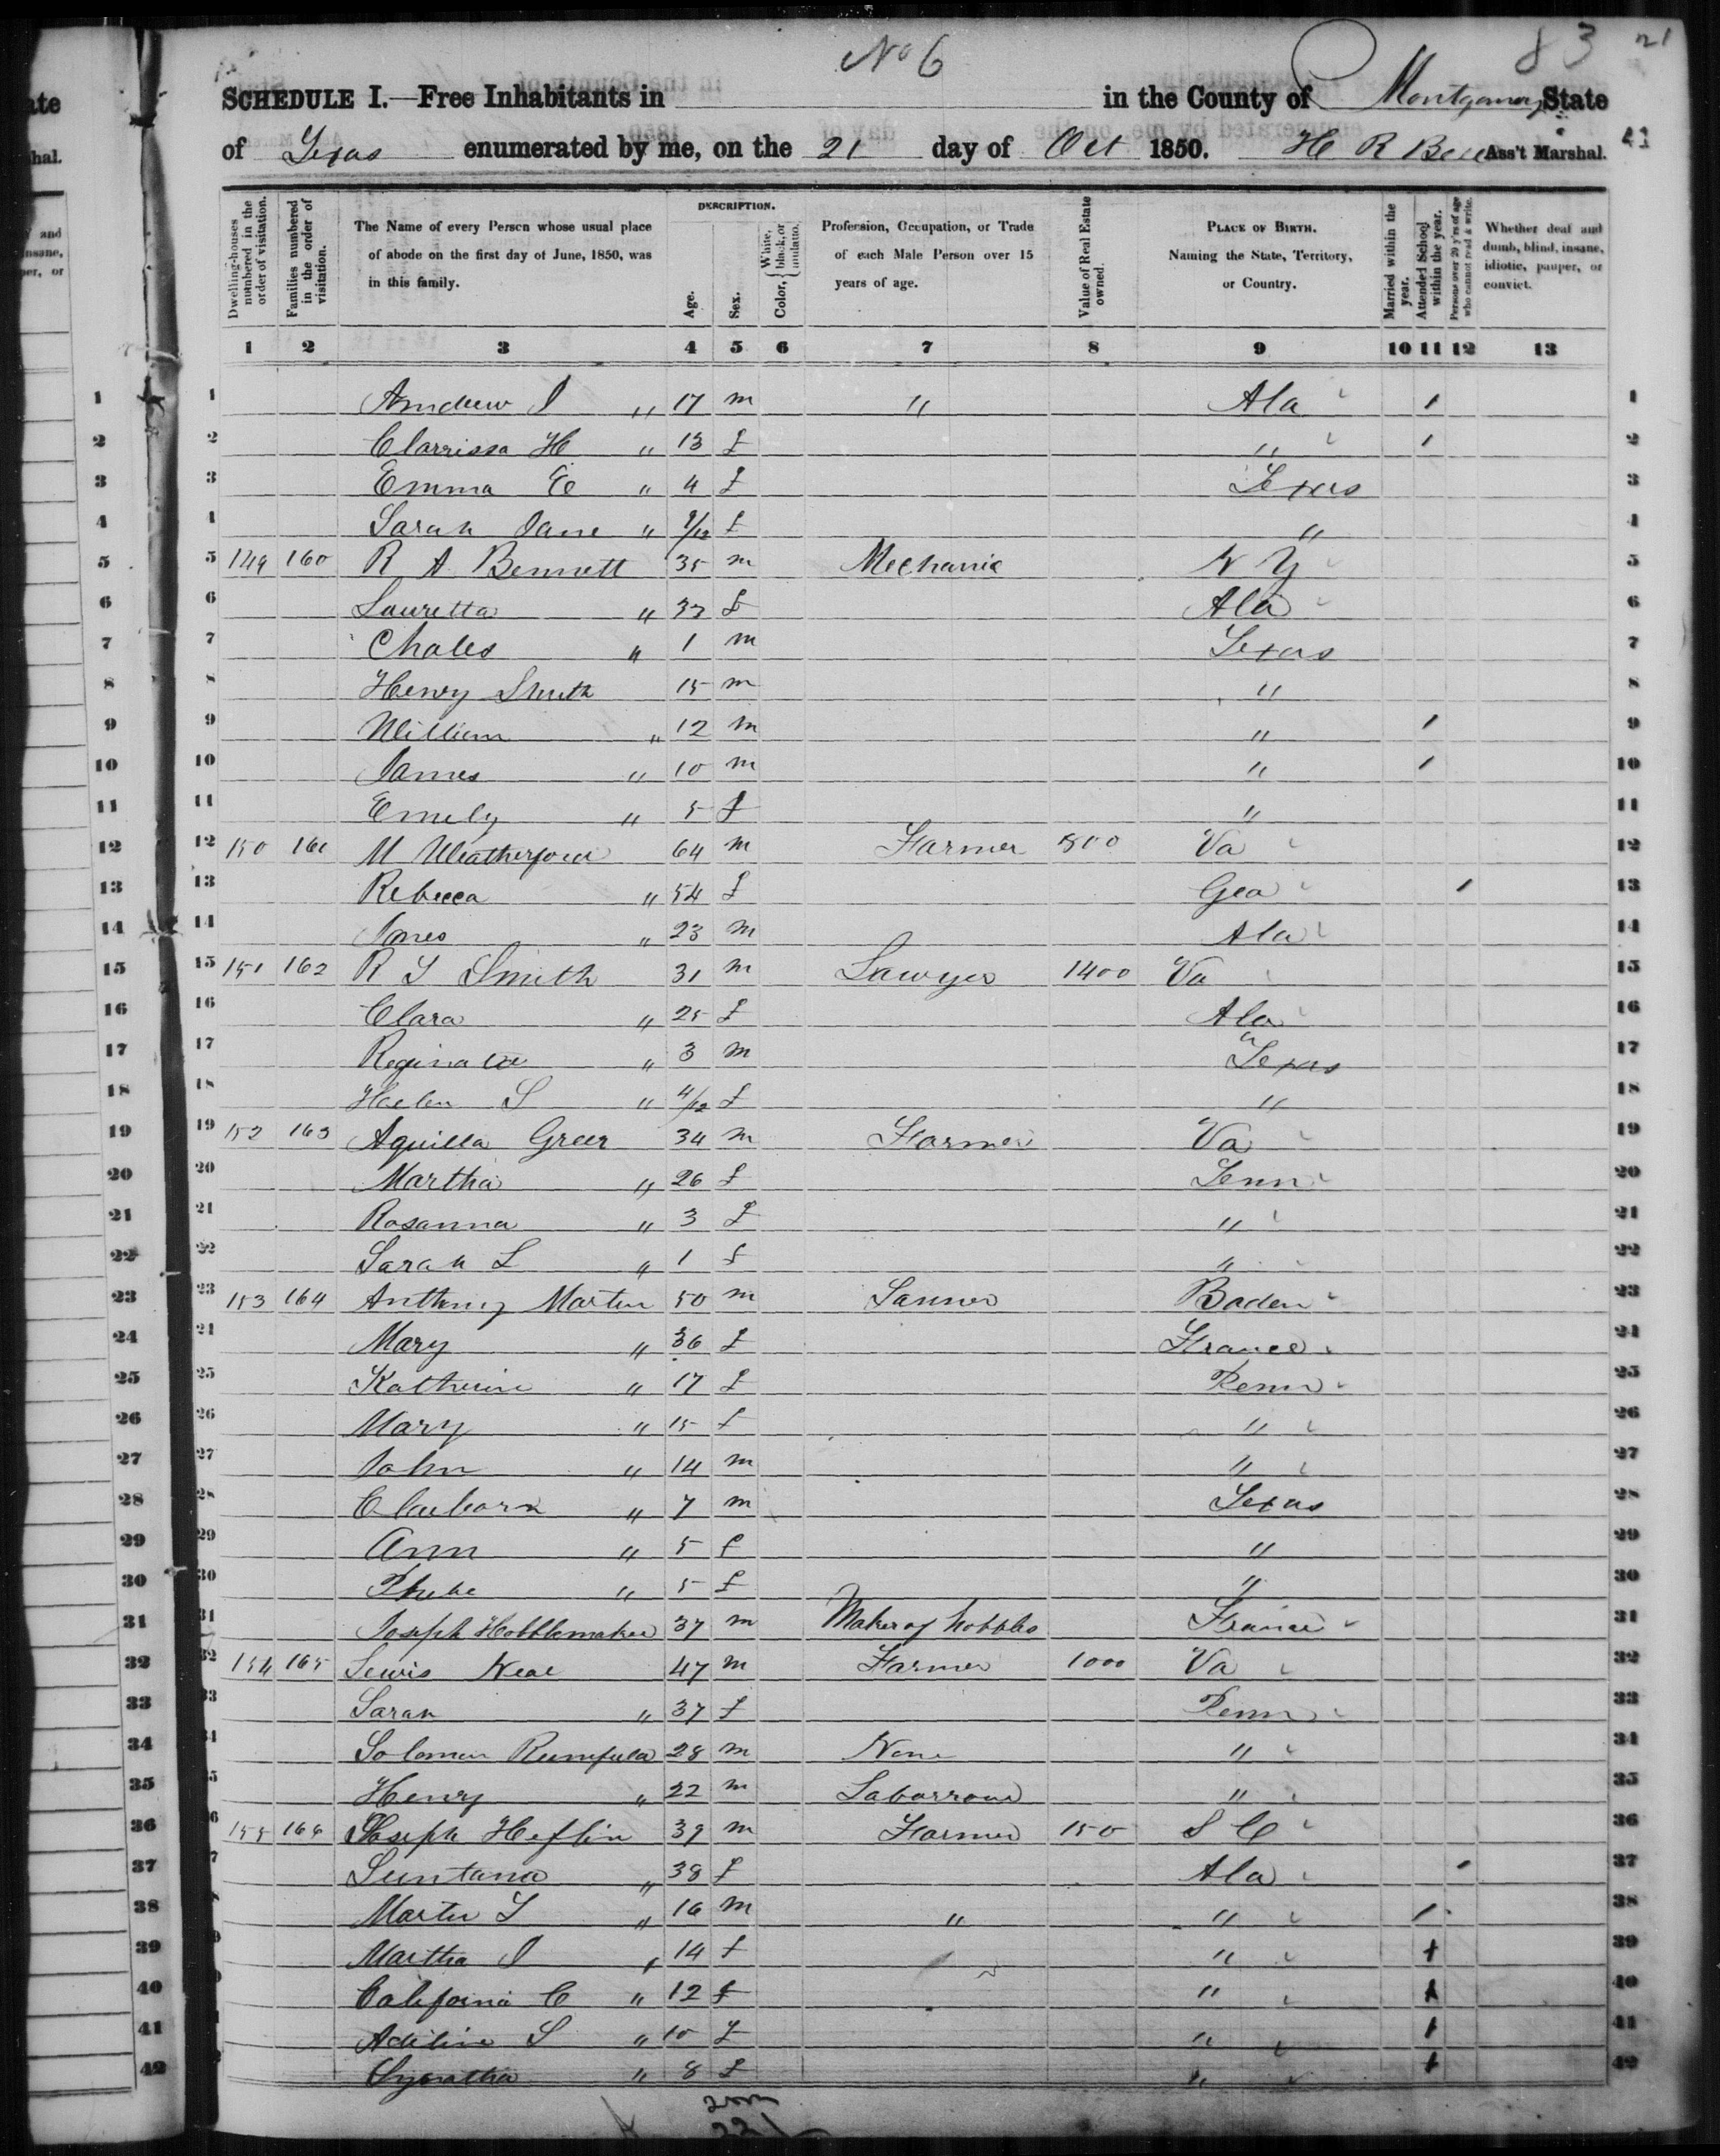 No 6
83 21
SCHEDULE I.—Free Inhabitants in in the County of Montgomery State
of Texas enumerated by me, on the 21 day of Oct 1850. H R Bell Ass't Marshal.
Dwelling-houses numbered in the order of visitation. Families numbered in the order of visitation. The Name of every Person whose usual place of abode on the first day of June, 1850, was in this family. DESCRIPTION. Age. Sex. Color, White, black, or mulatto. Profession, Occupation, or Trade of each Male Person over 15 years of age. Value of Real Estate owned. PLACE OF BIRTH. Naming the State, Territory, or Country. Married within the year. Attended School within the year. Persons over 20 y'rs of age who cannot read & write. Whether deaf and dumb, blind, insane, idiotic, pauper, or convict.
1 2 3 4 5 6 7 8 9 10 11 12 13
1 Andrew J " 17 m " Ala 1 1
2 Clarrissa H " 13 f " 1 2
3 Emma E " 4 f Texas 3
4 Sarah Jane " /12 f " 4
5 149 160 R A Bennett 35 m Mechanic N Y 5
6 Lauretta " 33 f Ala 6
7 Chales " 1 m Texas 7
8 Henry Smith 15 m " 8
9 William " 12 m " 1 9
10 James " 10 m " 1 10
11 Emily " 5 f " 11
12 150 161 M Weatherford 64 m Farmer 800 Va 12
13 Rebecca " 54 f Geo 1 13
14 Jones " 23 m Ala 14
15 151 162 R T Smith 31 m Lawyer 1400 Va 15
16 Clara " 25 f Ala 16
17 Reginald " 3 m " Texas 17
18 Haelen S " 4/12 f " 18
19 152 163 Aquilla Greer 34 m Farmer Va 19
20 Martha " 26 f Tenn 20
21 Rosanna " 3 f " 21
22 Sarah L " 1 f " 22
23 153 164 Anthony Martin 50 m Tanner Baden 23
24 Mary " 36 f France 24
25 Katherine " 17 f Penn 25
26 Mary " 15 f " 26
27 John " 14 m " 27
28 Claiborn " 7 m Texas 28
29 Ann " 5 f " 29
30 Phebe " 5 f " 30
31 Joseph Hobblemaker 37 m Maker of hobbles France 31
32 154 165 Lewis Neal 47 m Farmer 1000 Va 32
33 Sarah " 37 f Penn 33
34 Solomon 28 m None " 34
35 Henry " 22 m Laborrour " 35
36 155 166 Joseph Heflin 39 m Farmer 150 S C 36
37 " 38 f Ala 1 37
38 Martin T " 16 m " " 1 38
39 Martha J " 14 f " 1 39
40 California C " 12 f " 1 40
41 Adiline S " 10 f " 1 41
42 " 8 f " 1 42